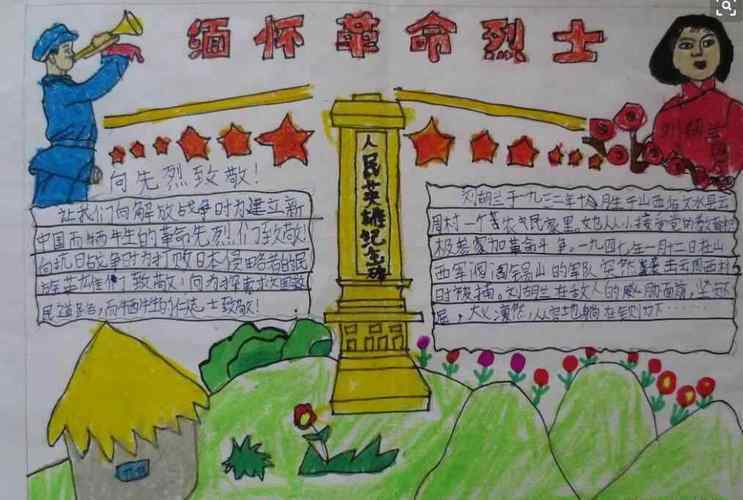 缅怀革命烈士
人民英雄纪念碑
刘胡兰
向先烈致敬！
让我们向解放战争时为建立新
中国而牺牲的革命先烈们致敬！
向抗日战争时为打败日本侵略者的民
族英雄们致敬！向为探索救国
民道路而牺牲的仁人志士致敬！
刘胡兰于一九三二年十月生于山西省文水县云
周村一个贫农民家里。她从小接受党的教育
积极参加革命斗争。一九四七年一月十二日在山
西军阀阎锡山的军队突然袭击云周西村
时被捕。刘胡兰在敌人的威胁面前，坚
屈，大义凛然，从容地躺在铡刀下……